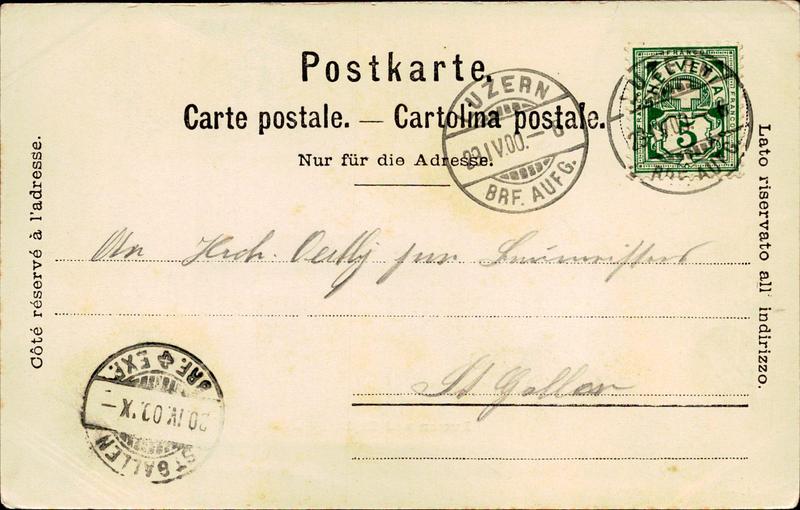 Postkarte.
Carte postale. — Cartolina postale.
Nur für die Adresse.
Côté réservé à l'adresse.
Lato riservato all' indirizzo.
FRANCO
HELVETIA
FRANCO
5
LUZERN
IV.00.
BRF. AUFG.
BRF. AUFG.
An
St Gallen
BRF. EXP.
20.IV.00.IX
ST GALLEN